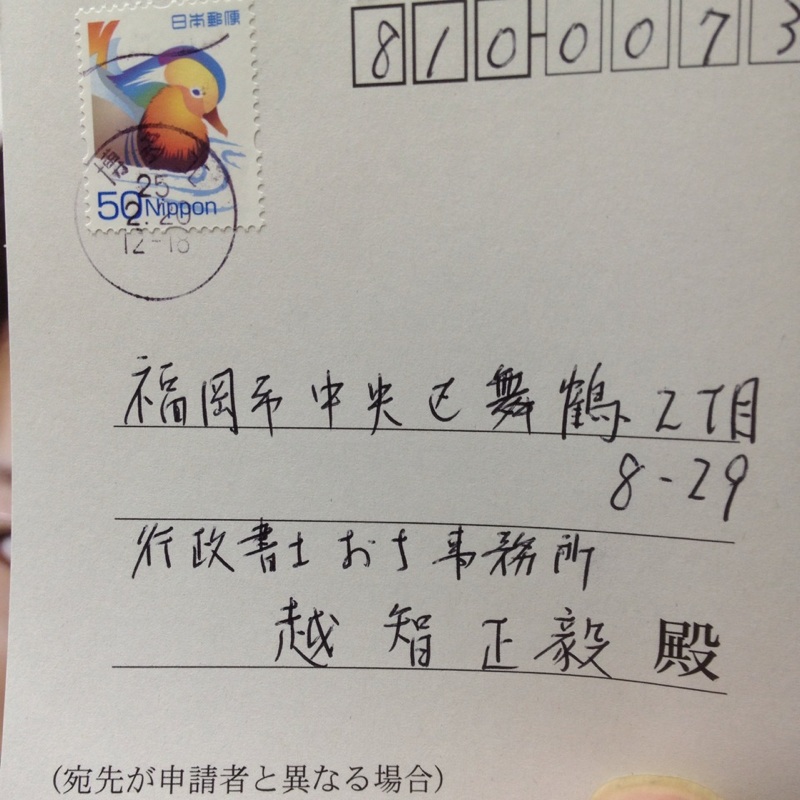 日本郵便
810-0073
25
2.20
12-18
50 Nippon
福岡市中央区舞鶴2丁目
8-29
行政書士おち事務所
越智正毅 殿
(宛先が申請者と異なる場合)